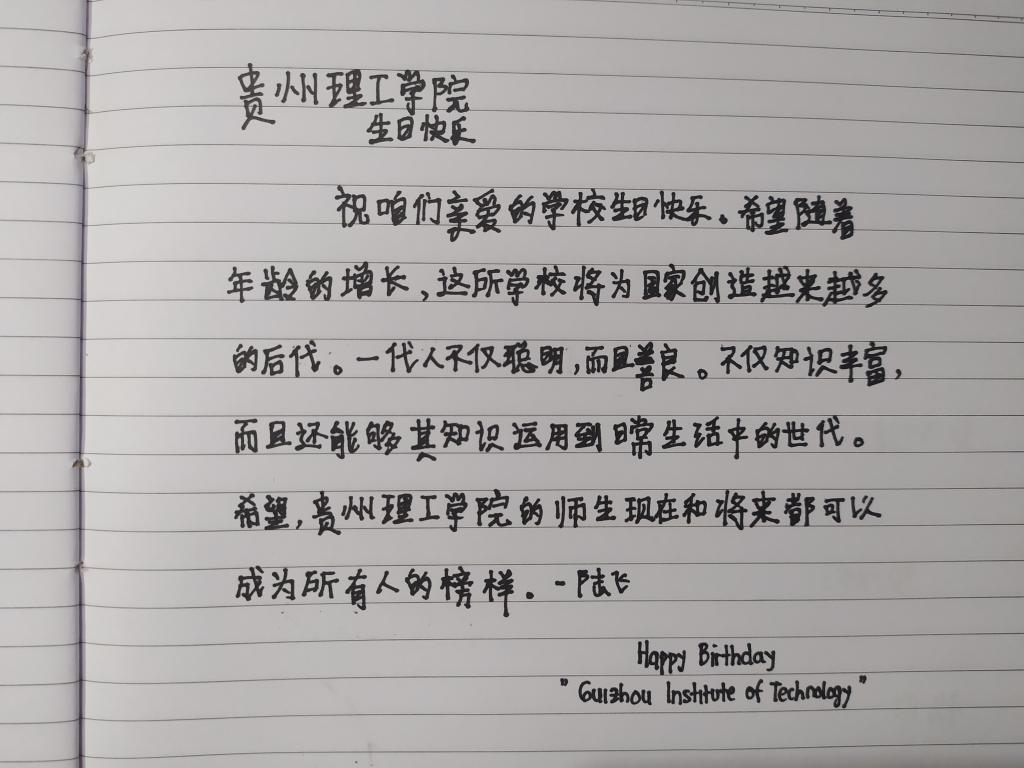 贵州理工学院
生日快乐
祝咱们亲爱的学校生日快乐。希望随着
年龄的增长,这所学校将为国家创造越来越多
的后代。一代人不仅聪明,而且善良。不仅知识丰富,
而且还能够其知识运用到日常生活中的世代。
希望,贵州理工学院的师生现在和将来都可以
成为所有人的榜样。-陆飞
Happy Birthday
"Guizhou Institute of Technology"